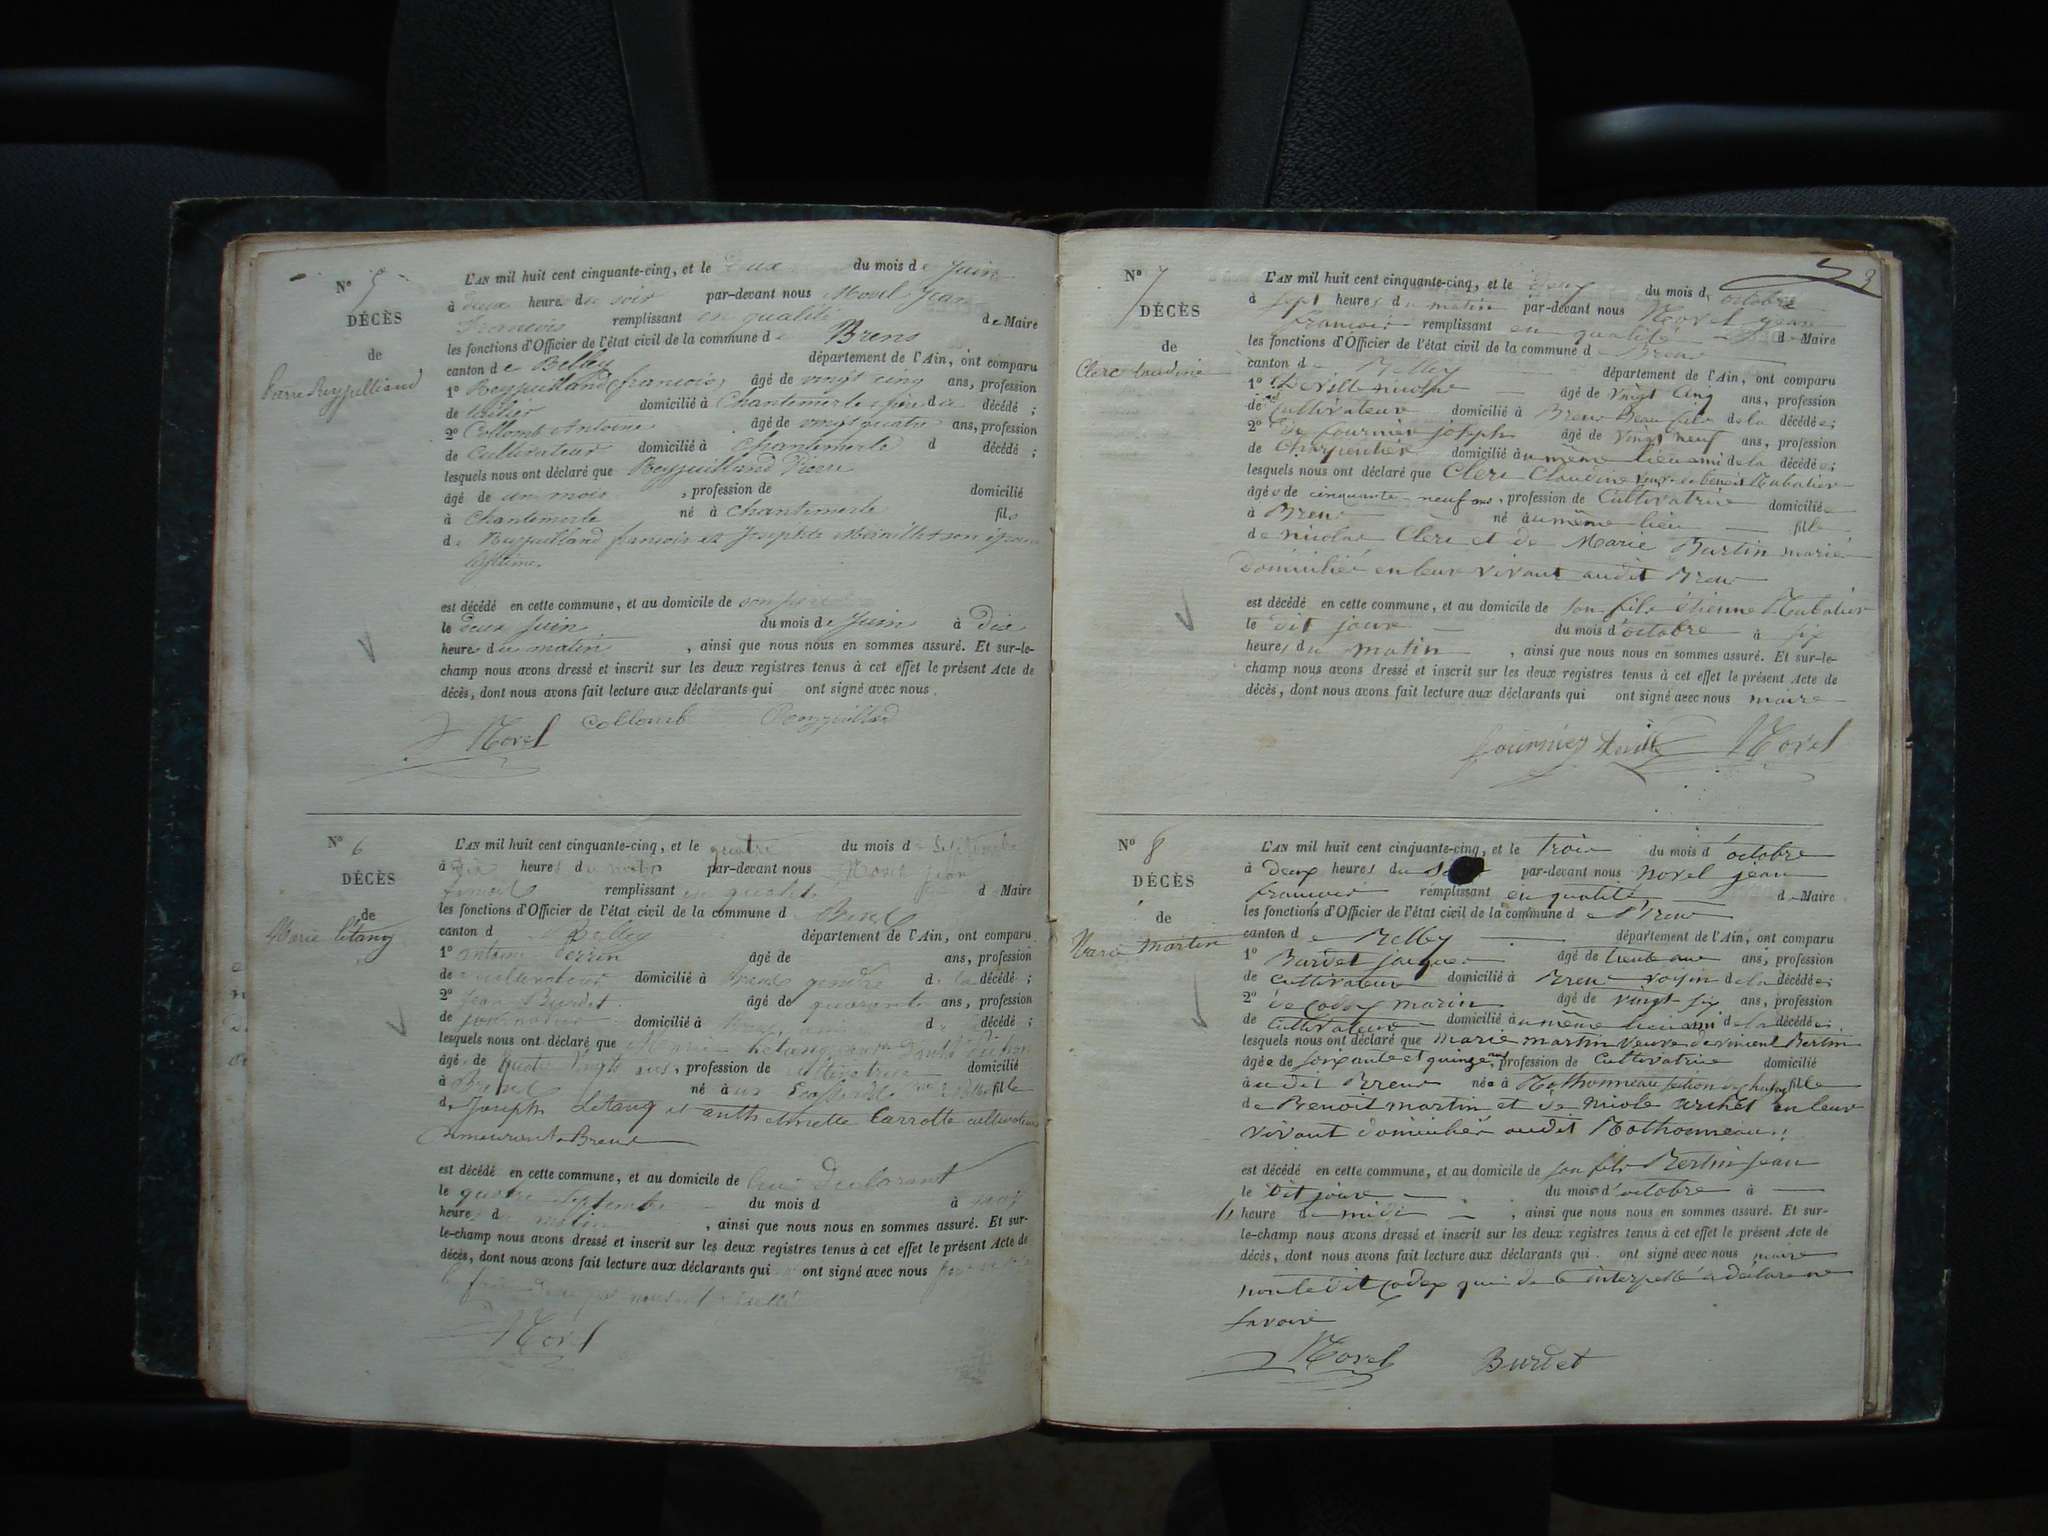 N° 5
DÉCÈS
de
Pierre Reypilliand
L'AN mil huit cent cinquante-cinq, et le deux du mois de Juin
à deux heure du soir par-devant nous Morel Jean
François remplissant en qualité de Maire
les fonctions d'Officier de l'état civil de la commune de Brens
canton de Belley département de l'Ain, ont comparu
1° françois, âgé de vingt cinq ans, profession
de domicilié à Chantemerle père du décédé ;
2° Collomb Antoine âgé de vingt quatre ans, profession
de Cultivateur domicilié à Chantemerle d décédé ;
lesquels nous ont déclaré que Pierre
âgé de un mois , profession de domicilié
à Chantemerle né à Chantemerle fils
de françois et Josephte son épouse
légitime.
est décédé en cette commune, et au domicile de son père
le deux Juin du mois de Juin à Dix
heures du matin , ainsi que nous nous en sommes assuré. Et sur-le-
champ nous avons dressé et inscrit sur les deux registres tenus à cet effet le présent Acte de
décès, dont nous avons fait lecture aux déclarants qui ont signé avec nous.
Morel Collomb
N° 6
DÉCÈS
de
Marie Létang
L'AN mil huit cent cinquante-cinq, et le quatre du mois de Septembre
à Dix heures du matin par-devant nous Morel jean
françois remplissant en qualité d Maire
les fonctions d'Officier de l'état civil de la commune d Brens
canton d Belley département de l'Ain, ont comparu
1° antoine Perrin âgé de ans, profession
de cultivateur domicilié à Brens gendre de la décédé ;
2° Jean Burdet âgé de quarante ans, profession
de journalier domicilié à d décédé ;
lesquels nous ont déclaré que Marie Letang
âgée de quatre vingts ans, profession de cultivatrice domicilié
à Brens né à fille
de Joseph Letang et anthelmette Carrotte cultivateurs
Demeurant a Brens
est décédé en cette commune, et au domicile de Declarant
le quatre Septembre du mois d à
heure d matin , ainsi que nous nous en sommes assuré. Et sur-
le-champ nous avons dressé et inscrit sur les deux registres tenus à cet effet le présent Acte de
décès, dont nous avons fait lecture aux déclarants qui ont signé avec nous
Morel
N° 7
DÉCÈS
de
Clerc Claudine
L'AN mil huit cent cinquante-cinq, et le deux du mois d octobre
à sept heures du matin par-devant nous Morel jean
françois remplissant en qualité de Maire
les fonctions d'Officier de l'état civil de la commune de Brens
canton de Belley département de l'Ain, ont comparu
1° Deville âgé de vingt cinq ans, profession
de cultivateur domicilié à Brens Beau fils de la décédée ;
2° De fournier joseph âgé de vingt neuf ans, profession
de Charpentier domicilié au même lieu ami de la décédée ;
lesquels nous ont déclaré que Clerc Claudine veuve de benoit
âgée de cinquante-neuf ans, profession de Cultivatrice domiciliée
à Brens né au même lieu fille
de nicolas Clerc et de Marie Bartin mariés
domiciliés en leur vivant audit Brens
est décédé en cette commune, et au domicile de son fils étienne
le dit jour du mois d'octobre à six
heures du matin , ainsi que nous nous en sommes assuré. Et sur-le-
champ nous avons dressé et inscrit sur les deux registres tenus à cet effet le présent Acte de
décès, dont nous avons fait lecture aux déclarants qui ont signé avec nous maire
fournier Deville Morel
N° 8
DÉCÈS
de
Marie martin
L'AN mil huit cent cinquante-cinq, et le trois du mois d'octobre
à deux heures du par-devant nous morel jean
françois remplissant en qualité de Maire
les fonctions d'Officier de l'état civil de la commune de Brens
canton de Belley département de l'Ain, ont comparu
1° Burdet jacques âgé de trente ans, profession
de Cultivateur domicilié à Brens voisin de la décédée ;
2° de marin âgé de vingt six ans, profession
de Cultivateur domicilié au même lieu ami de la décédée ;
lesquels nous ont déclaré que marie martin veuve de vincent Bertin
âgée de soixante et quinze ans, profession de Cultivatrice domicilié
à audit Brens née à Rothonneau fille
de Benoit martin et de nicole en leur
vivant domiciliés audit Rothonneau.
est décédé en cette commune, et au domicile de son fils Bertin jean
le Dit jour du mois d'octobre à
heure de midi , ainsi que nous nous en sommes assuré. Et sur-
le-champ nous avons dressé et inscrit sur les deux registres tenus à cet effet le présent Acte de
décès, dont nous avons fait lecture aux déclarants qui ont signé avec nous maire
non ledit qui de ce interpellé a déclaré ne
savoir
Morel Burdet